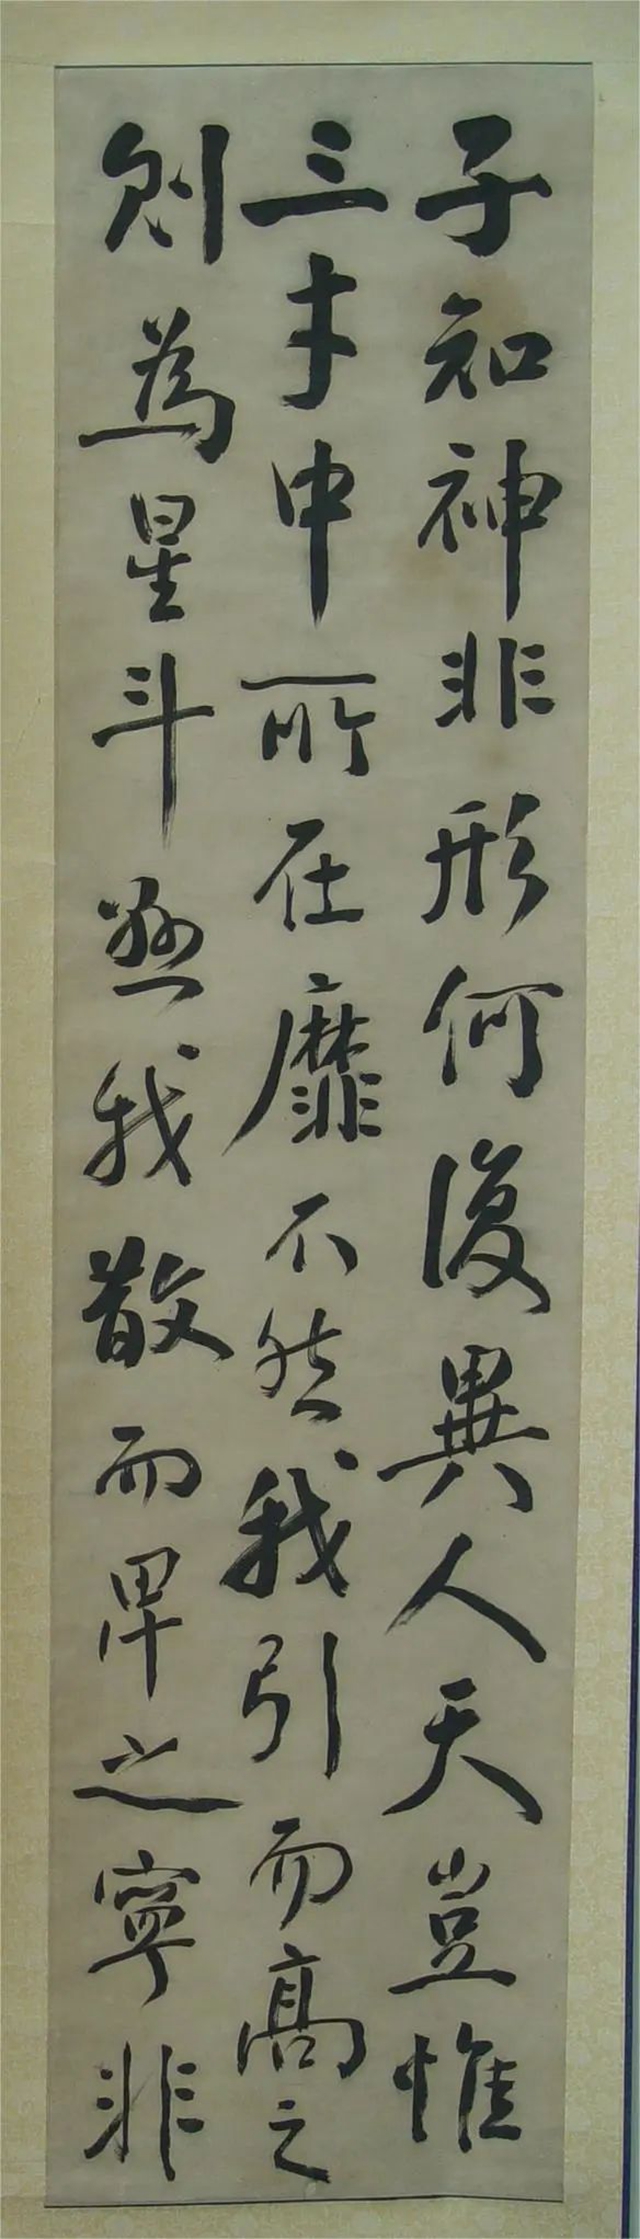 子知神非形何復異人天豈惟
三才中所在靡不然我引而高之
則為星斗懸我散而卑之寧非